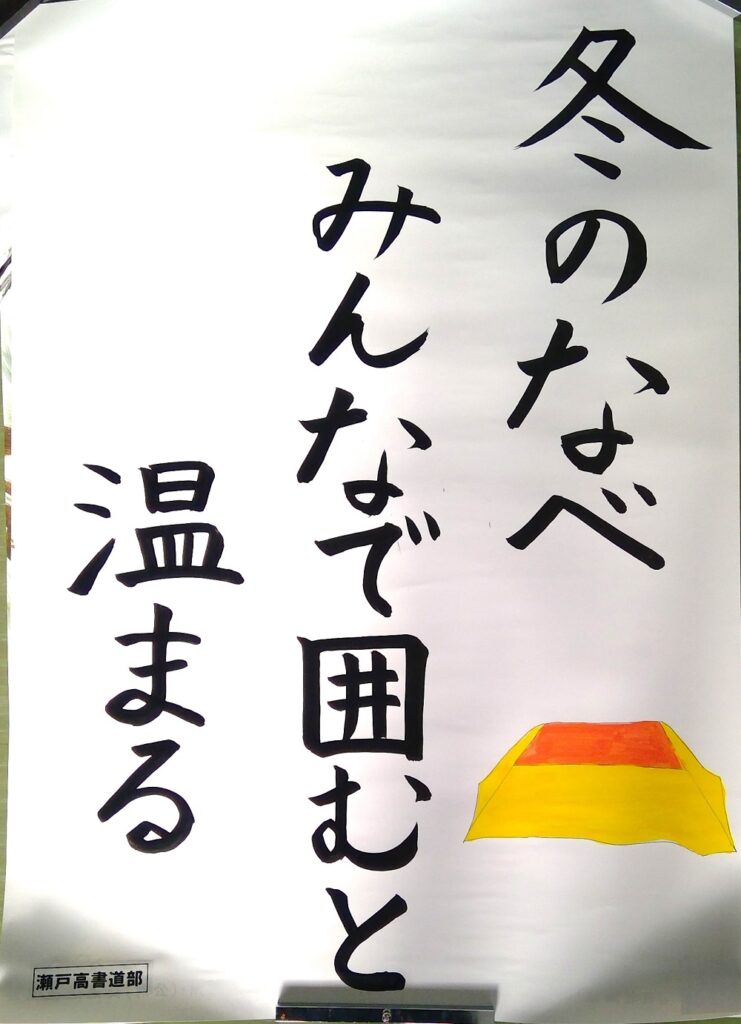 冬のなべ
みんなで囲むと
温まる
瀬戸高書道部